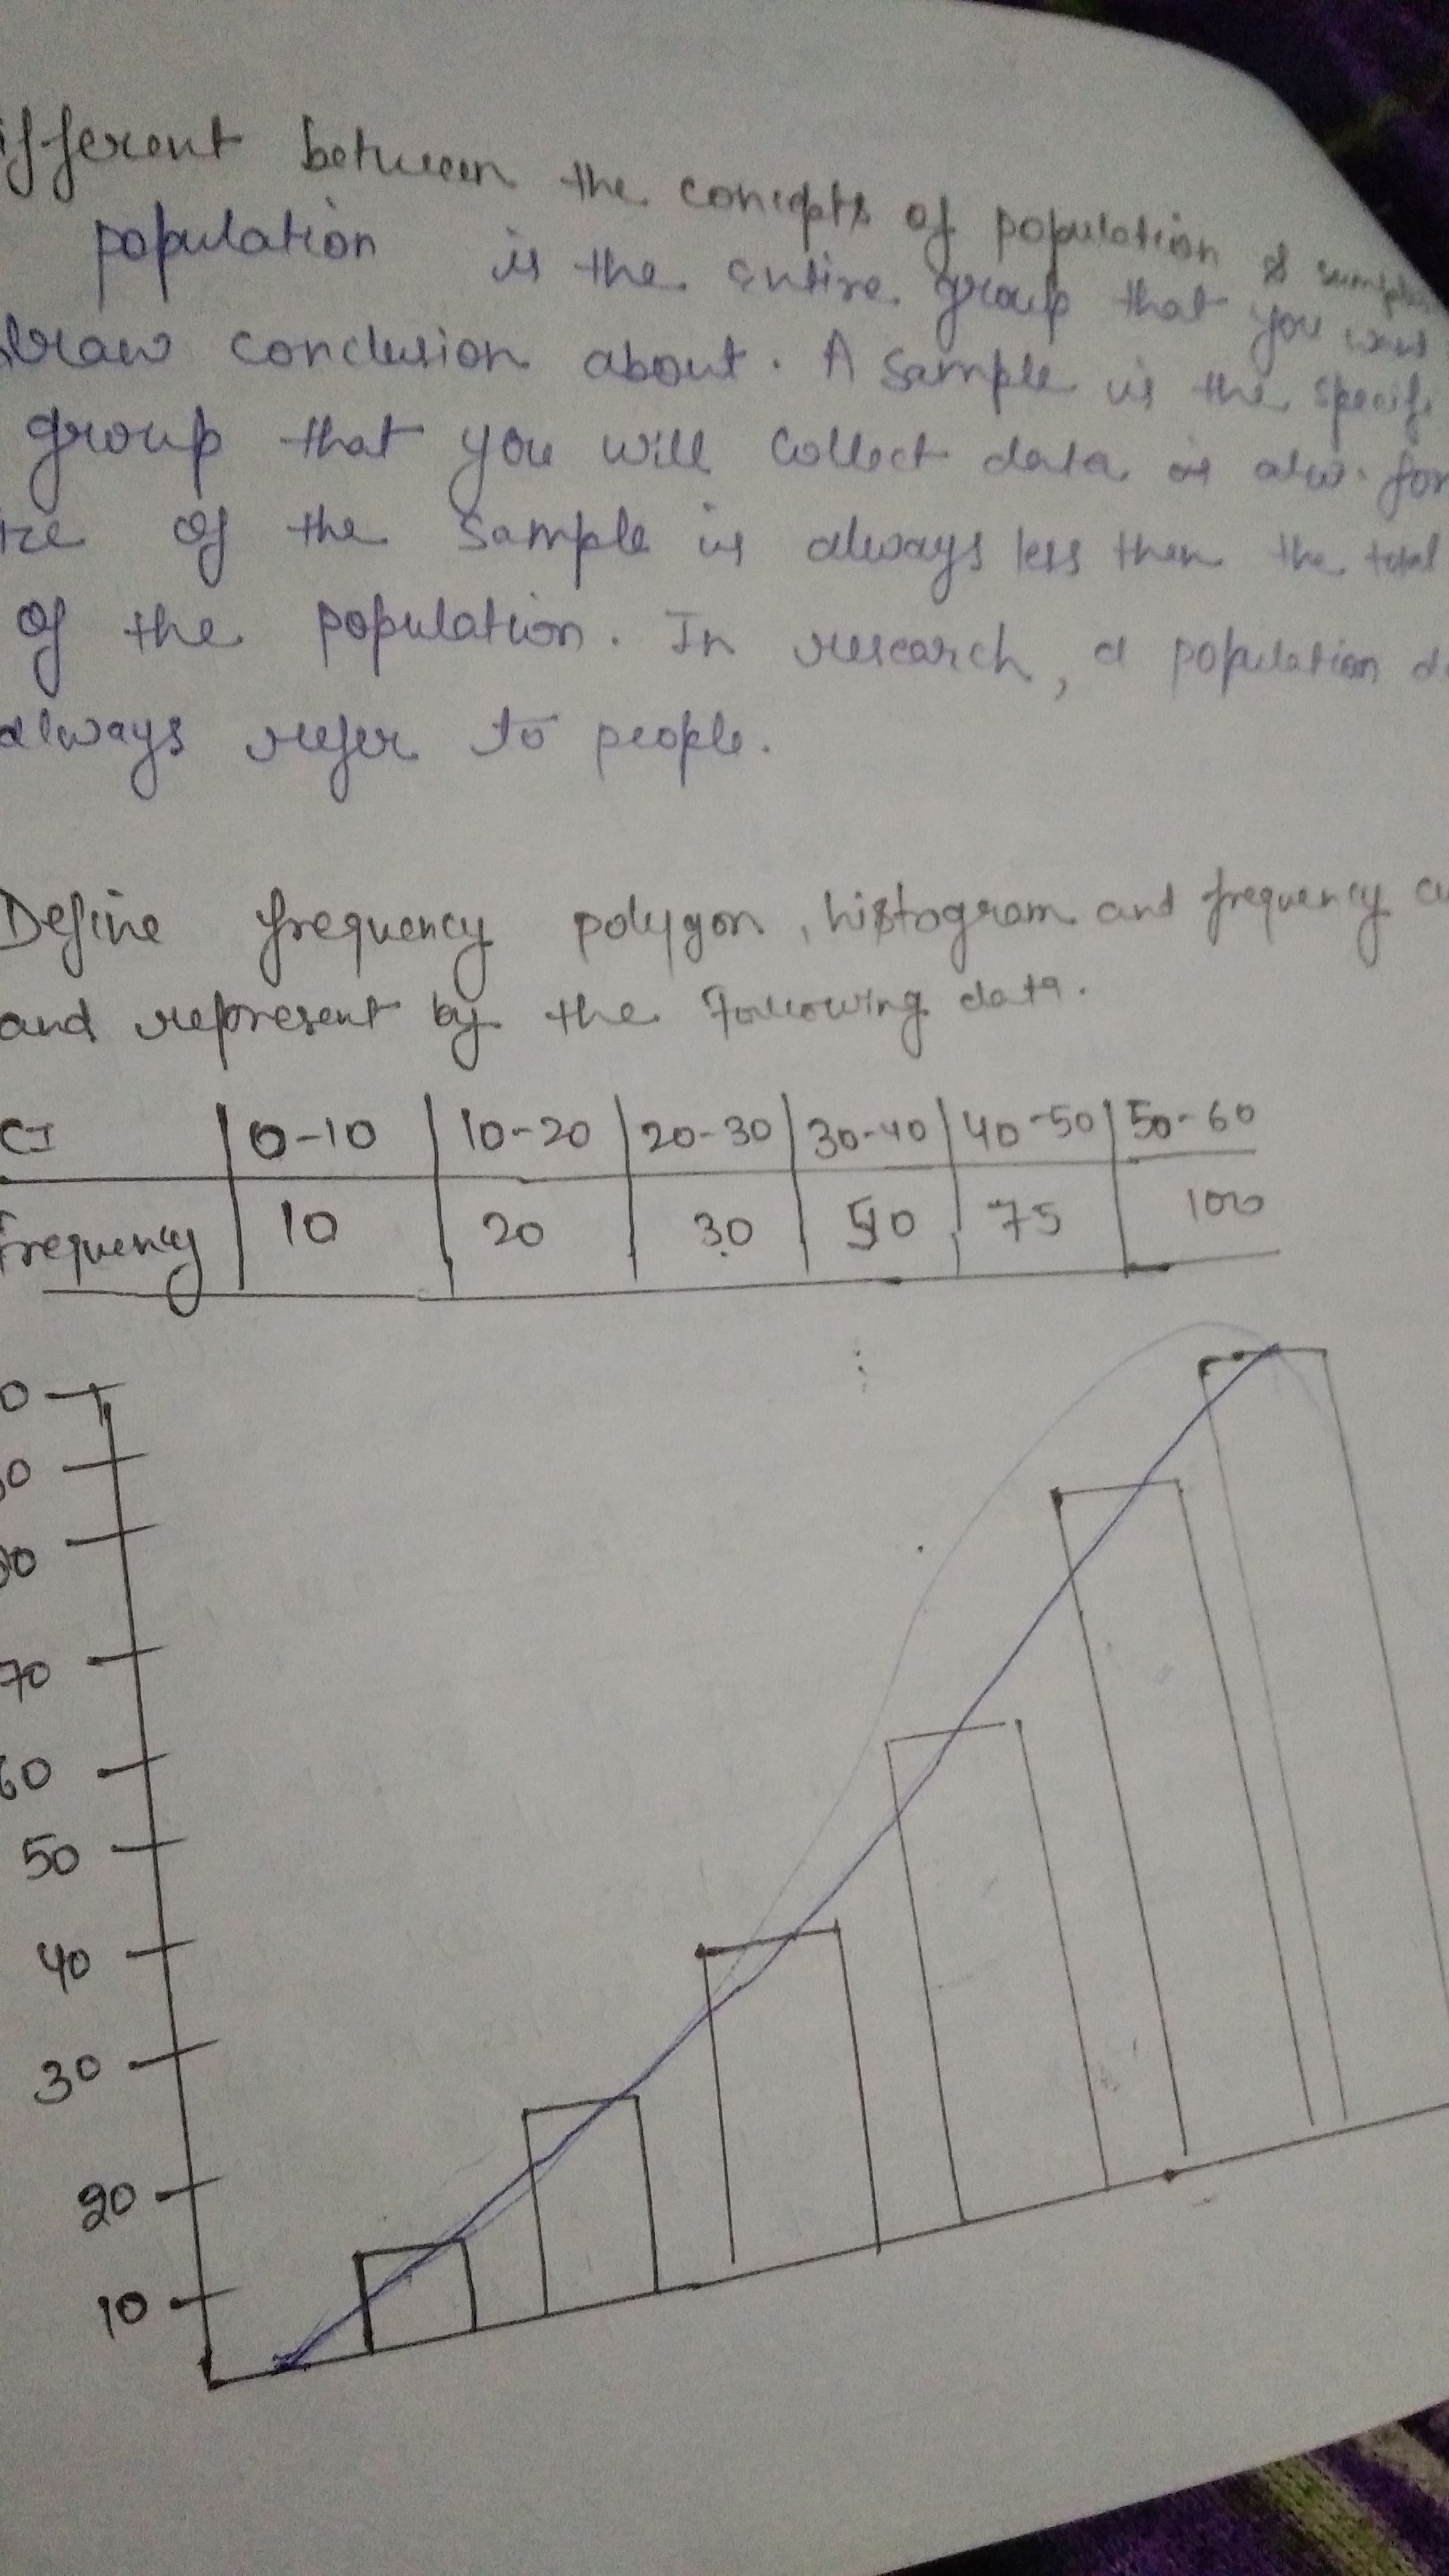 ifferent between the concepts of population &
population is the entire group that you want
draw conclusion about. A sample is the specifi
group that you will collect data
ize of the sample is always less then the total
of the population. In research, a population do
always refer to people.
Define frequency polygon, histogram and frequency cu
and represent by the following data.
CI 0-10 10-20 20-30 30-40 40-50 50-60
frequency 10 20 30 50 75 100
0
0
0
70
60
50
40
30
20
10